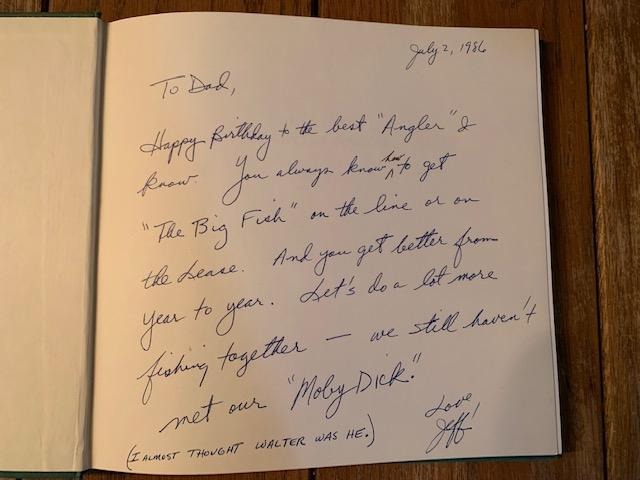 July 2, 1986
To Dad,
Happy Birthday to the best "Angler" I
know. You always know how to get
"The Big Fish" on the line or on
the Lease. And you get better from
year to year. Let's do a lot more
fishing together — we still haven't
met our "Moby Dick."
Love
Jeff!
(I ALMOST THOUGHT WALTER WAS HE.)